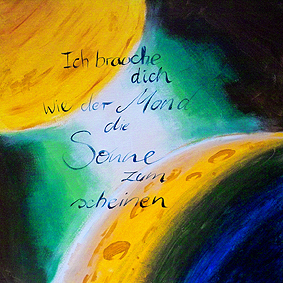 Ich brauche
dich
wie der Mond
die
Sonne
zum
scheinen